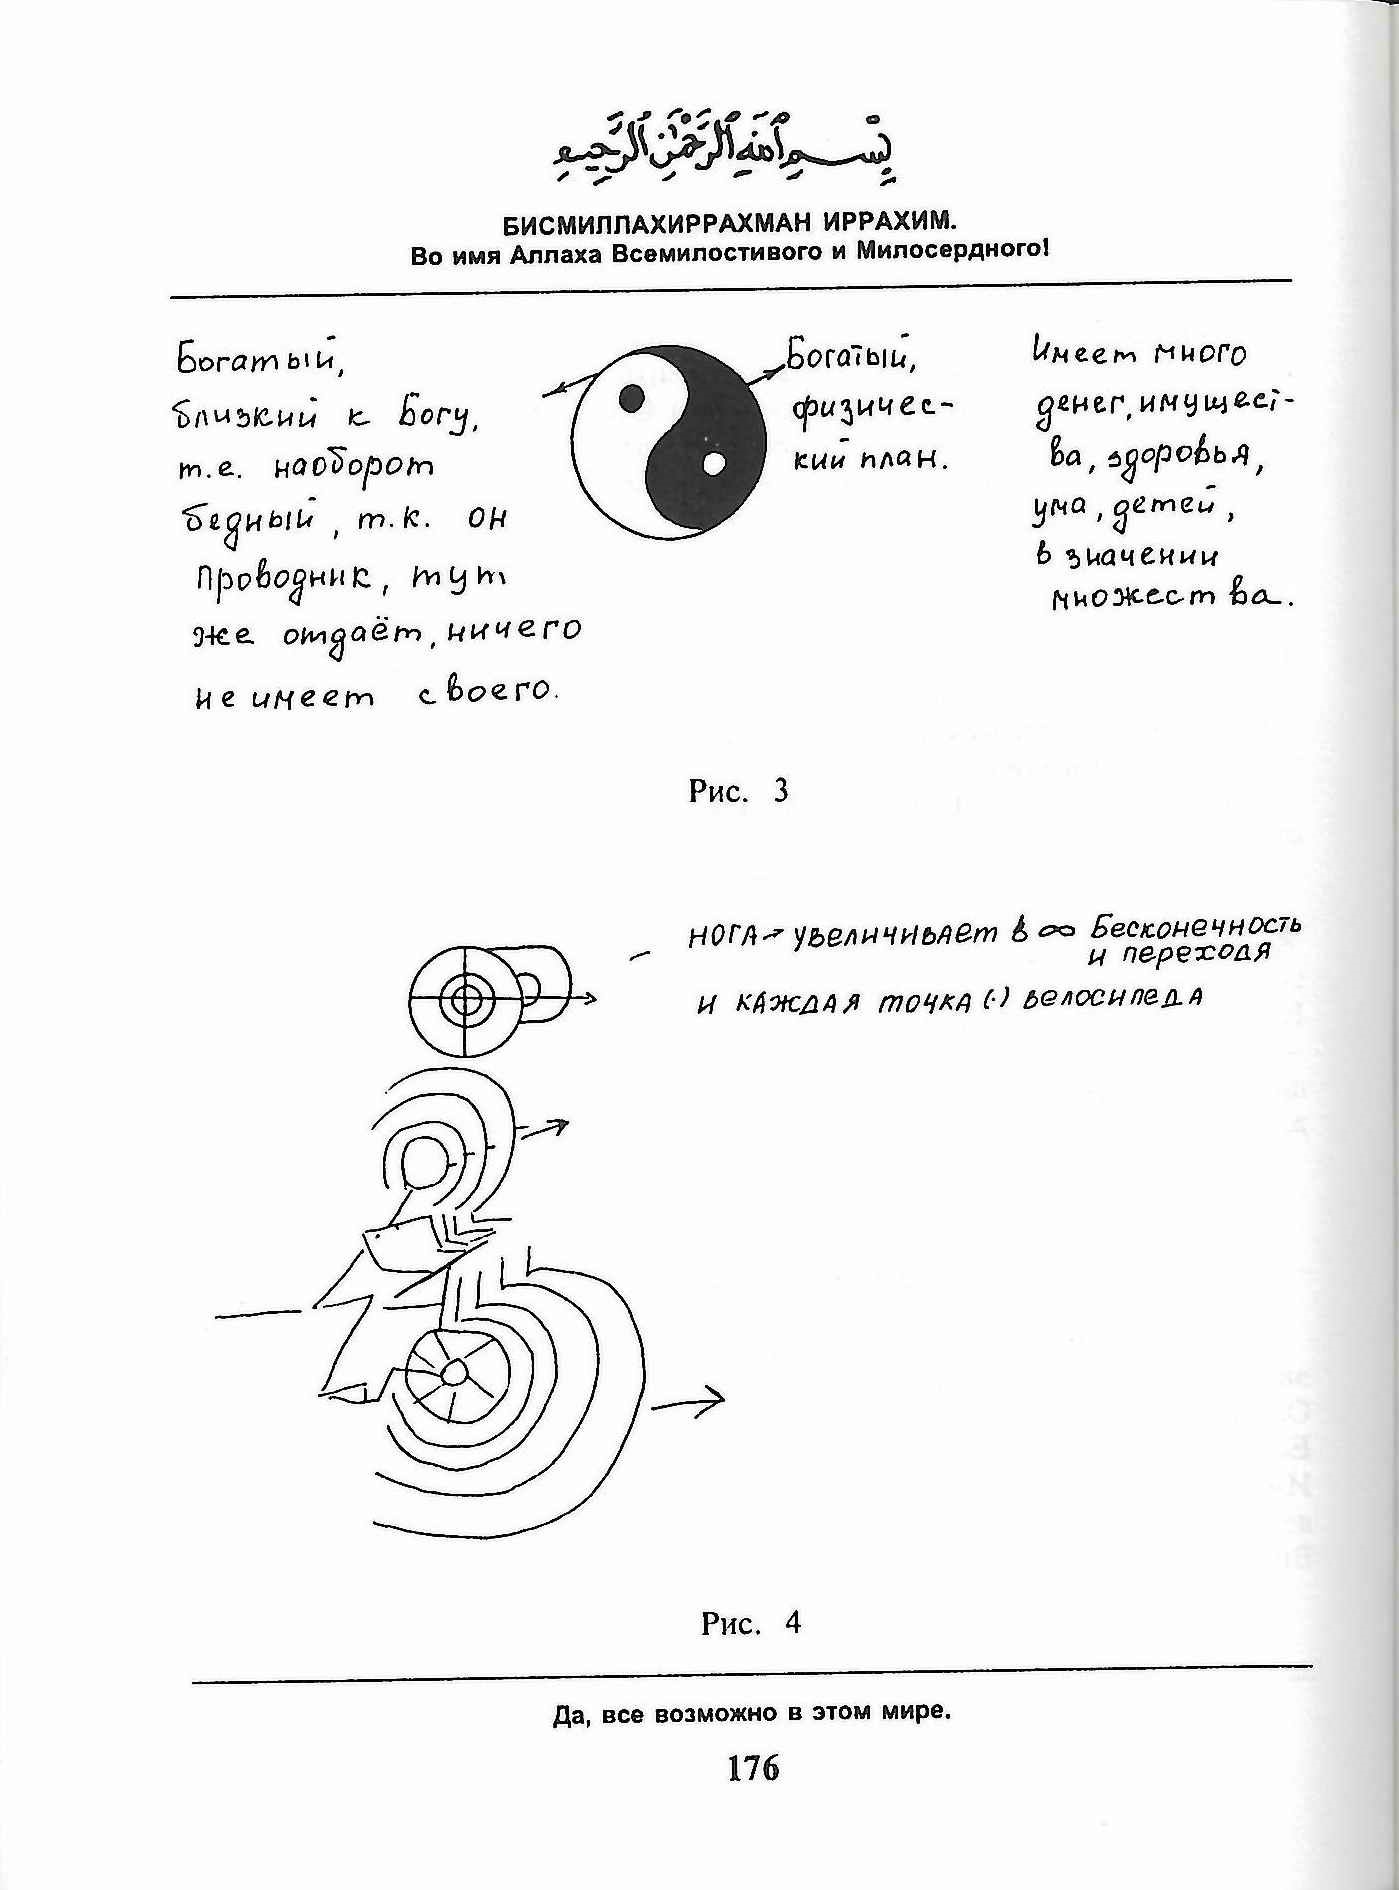 بِسْمِ ٱللَّهِ ٱلرَّحْمَٰنِ ٱلرَّحِيمِ
БИСМИЛЛАХИРРАХМАН ИРРАХИМ.
Во имя Аллаха Всемилостивого и Милосердного!
Богатый,
близкий к Богу,
т.е. наоборот
бедный, т.к. он
проводник, тут
же отдаёт, ничего
не имеет своего.
Богатый,
физичес-
кий план.
Имеет много
денег, имущест-
ва, здоровья,
ума, детей,
в значении
множества.
Рис. 3
НОГА → увеличивает в ∞ Бесконечность
и переходя
и каждая точка (·) велосипеда
Рис. 4
Да, все возможно в этом мире.
176